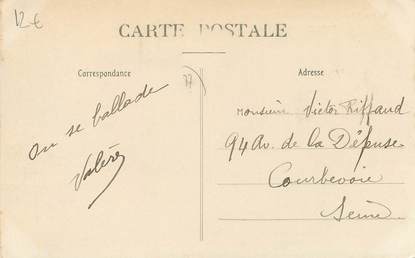 12€
CARTE POSTALE
Correspondance
77
Adresse
on se ballade
Valérie
Monsieur Victor Riffaud
94 Av. de la Défense
Courbevoie
Seine